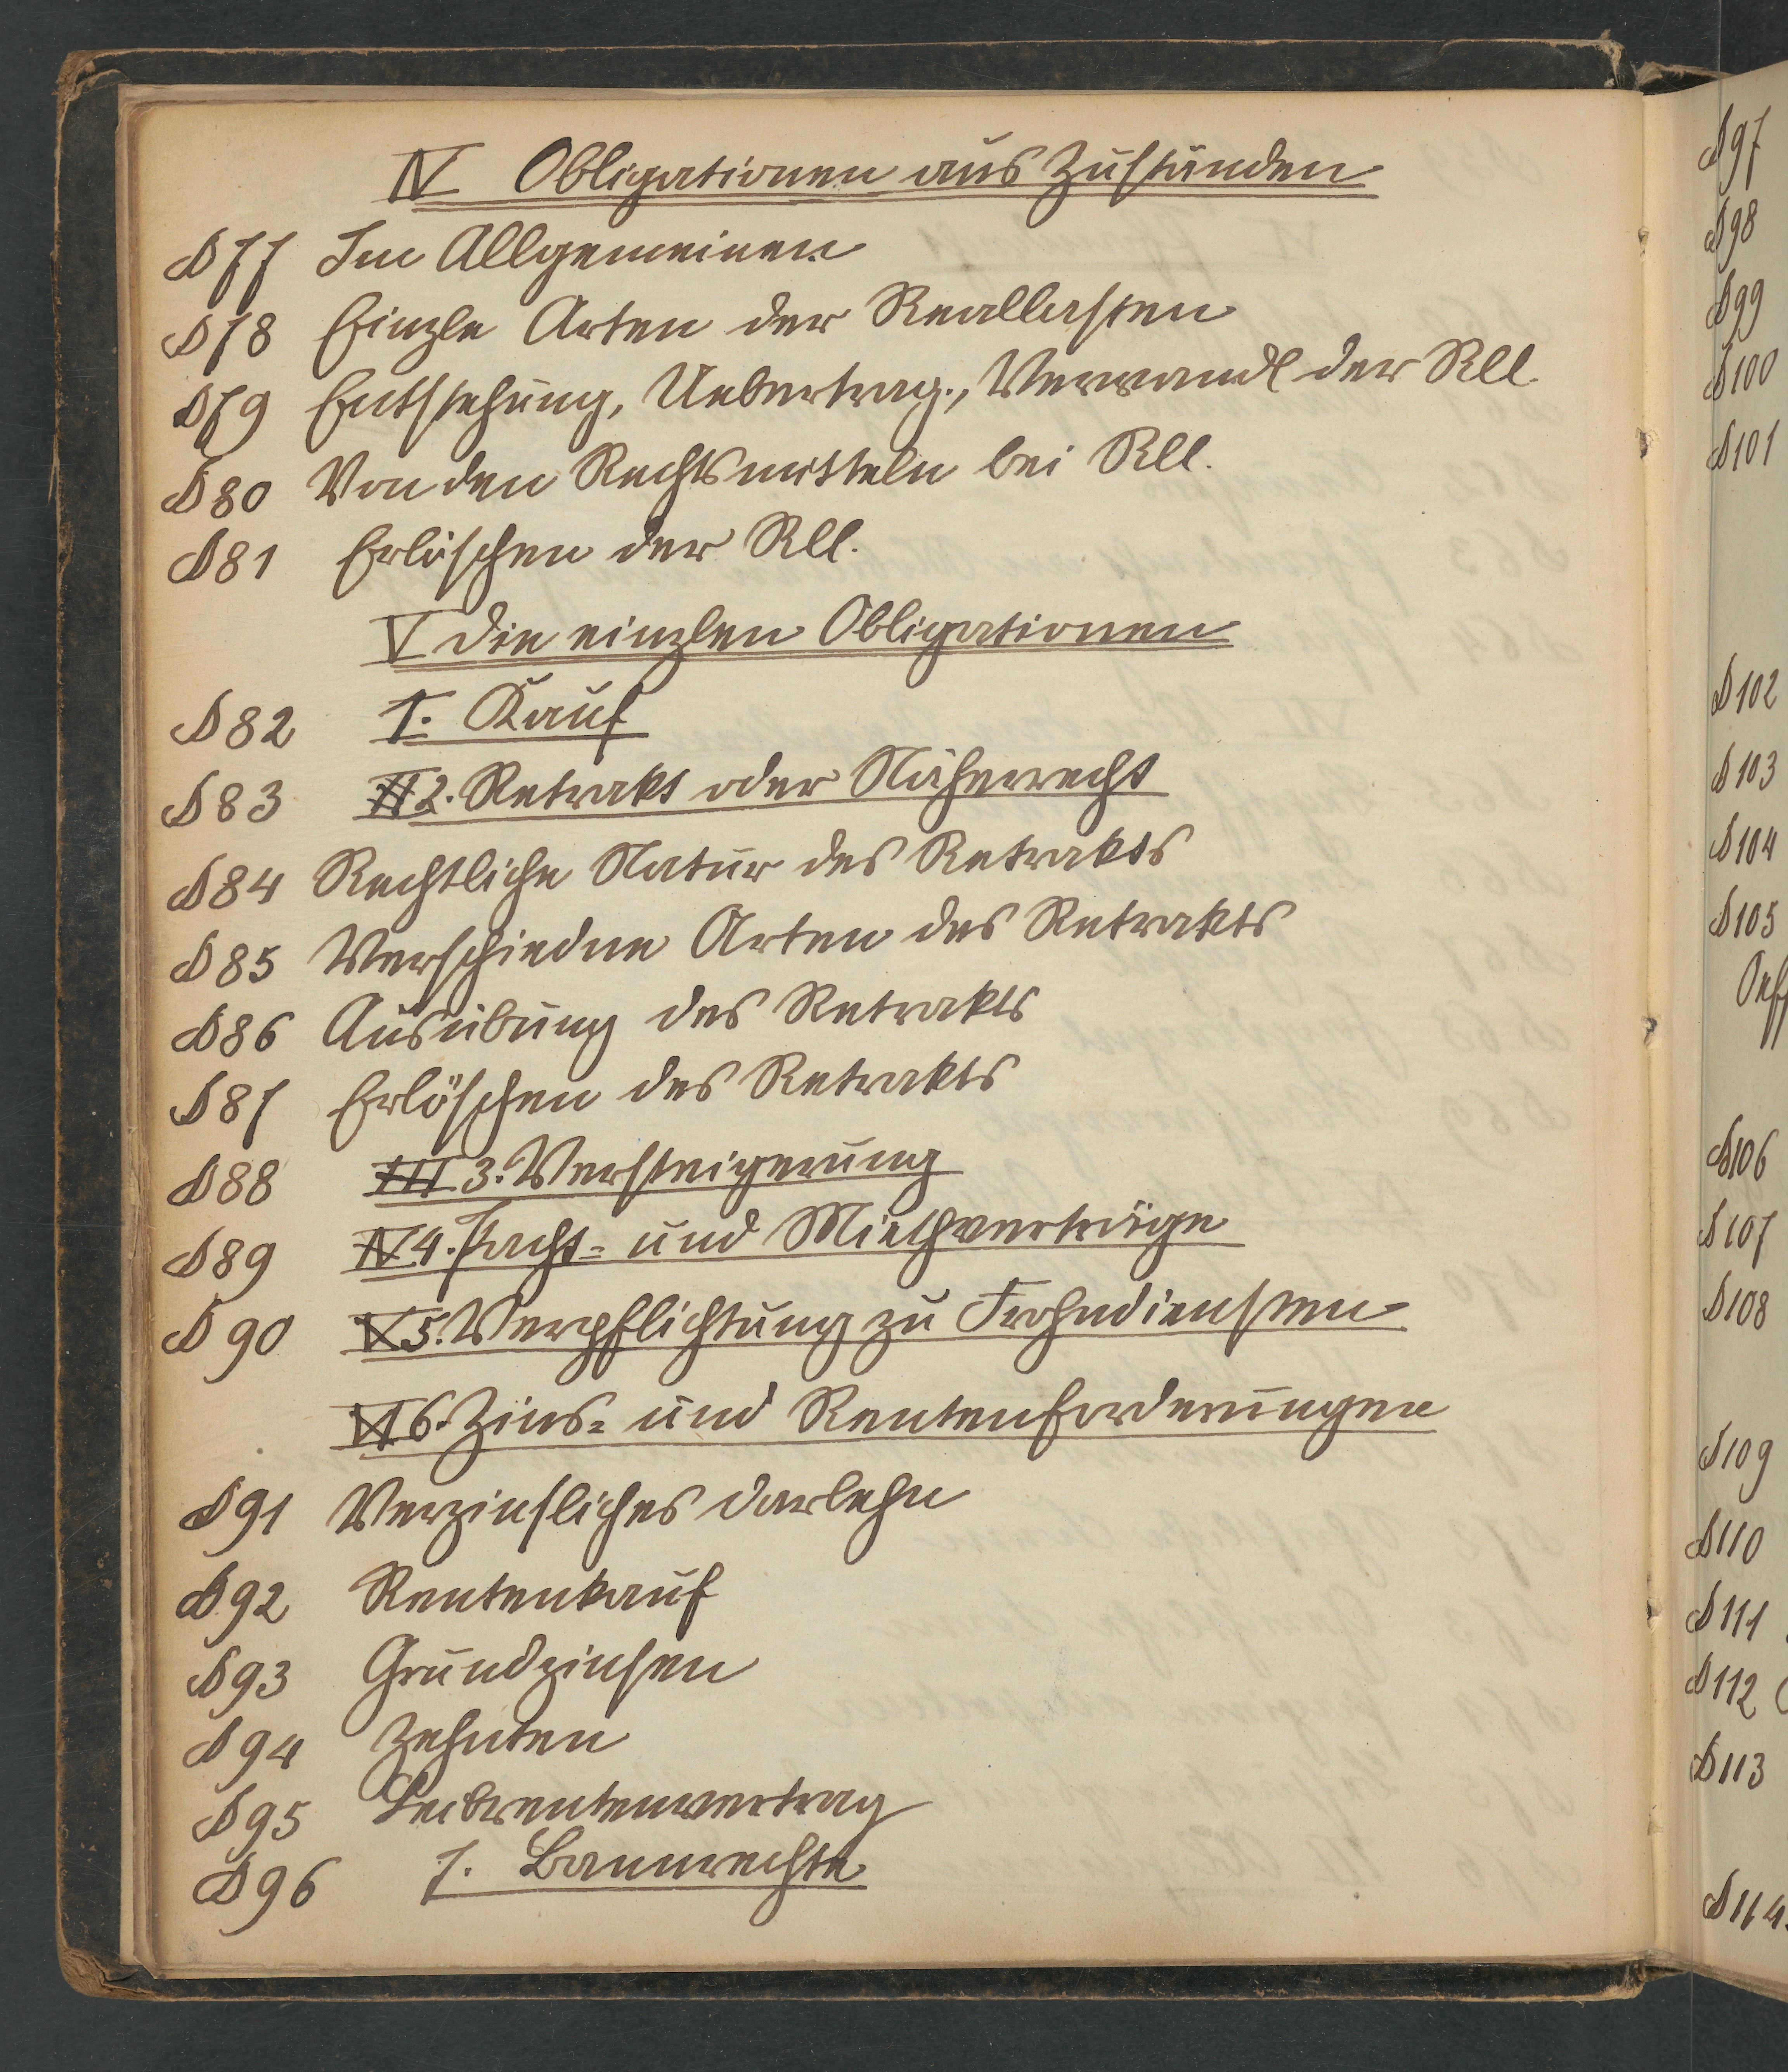 IV Obligationen aus Zuständen
§ 77 Im Allgemeinen
§ 78 Einzle Arten der Reallasten
§ 79 Entstehung, Uebertrag., Verwandl der Rll.
§ 80 Von den Rechtsmitteln bei Rll.
§ 81 Erlöschen der Rll.
V die einzlen Obligationen
§ 82 1. Kauf
§ 83 II 2. Retrakt oder Näherrecht
§ 84 Rechtliche Natur des Retrakts
§ 85 Verschiedne Arten des Retrakts
§ 86 Ausübung des Retrakts
§ 87 Erlöschen des Retrakts
§ 88 III 3. Versteigerung
§ 89 IV 4. Pacht- und Miethverträge
§ 90 V 5. Verpflichtung zu Frohndiensten
VI 6. Zins- und Rentenforderungen
§ 91 Verzinsliches darlehn
§ 92 Rentenkauf
§ 93 Grundzinsen
§ 94 Zehnten
§ 95 Leibrentenvertrag
§ 96 7. Bannrechte
§ 97
§ 98
§ 99
§ 100
§ 101
§ 102
§ 103
§ 104
§ 105
§ 106
§ 107
§ 108
§ 109
§ 110
§ 111
§ 112
§ 113
§ 114